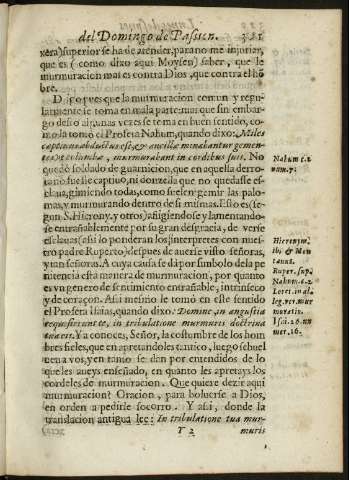 del Domingo de Passion.
xera) superior se ha de atender, para no me injuriar,
que es (como dixo aqui Moysen) saber, que le
murmuracion mas es contra Dios, que contra el hõ
bre.
Digo pues que la murmuracion comun y regu-
larmente se toma en mala parte: mas que sin embar
go desso ay, unas vezes se toma en buen sentido, co-
mo la tomò el Profeta Nahum, quando dixo: Miles
captivus abductus est, & ancillæ minabantur gemen-
tes ut columbæ, murmurabant in cordibus suis. No
quedò soldado de guarnicion, que en aquella derro-
ta no fuesse captivo, ni donzella que no quedasse es-
clava, gimiendo todas, como suelen gemir las palo-
mas, y murmurando dentro de si mismas. Esto es (se-
gun S. Hierony. y otros) afligiendose y lamentando-
se entrañablemente por su gran desgracia, de verse
esclavas (assi lo ponderan los interpretes con nues-
tro padre Ruperto) despues de averse visto señoras,
y tan señoras. A cuya causa se dà por simbolo de la pe
nitencia esta manera de murmuracion, por quanto
es vn genero de sentimiento entrañable, intrinseco
y de coraçon. Assi mesmo le tomò en este sentido
el Profeta Isaias, quando dixo: Domine, in angustia
requisierunt te, in tribulatione murmuris doctrina
tua eis. Ya conoces, Señor, la costumbre de los hom
bres fieles, que en apretandoles tantico, luego se buel
ven a vos, y en tanto se dan por entendidos de lo
que les aveys enseñado, en quanto les apretays los
cordeles de murmuracion. Que quiere dezir aqui
murmuracion? Oracion, para bolverse a Dios,
en orden a pedirle socorro. Y assi, donde la
translacion antigua lee: In tribulatione tua mur-
T 2 muris
Nahum c. 2
num. 7.
Hieronym.
ib. & Mon
tanus.
Ruper. sup.
Nahum. c. 2
muratio.
Isai. 26. nu
mer. 16.